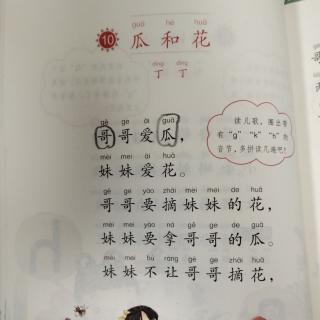 guā hé huā
10 瓜和花
dīng dīng
丁丁
gē ge ài guā
哥哥爱瓜，
mèi mei ài huā
妹妹爱花。
gē ge yào zhāi mèi mei de huā
哥哥要摘妹妹的花，
mèi mei yào ná gē ge de guā
妹妹要拿哥哥的瓜。
mèi mei bú ràng gē ge zhāi huā
妹妹不让哥哥摘花，
读儿歌，圈出带
有“g”“k”“h”的
音节，多拼读几遍吧！